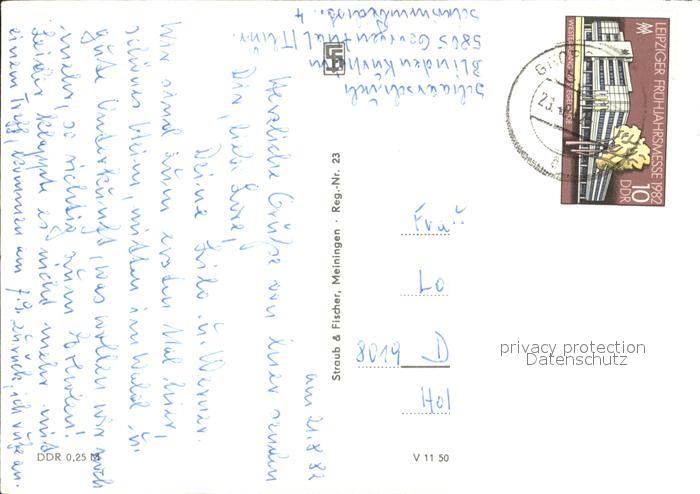 Scharschuch
Blinden Kurheim
5805 Georgenthal / Thür.
Schwimmbadstr. 4
am 21.8.82
Herzliche Grüße von hier senden
Dir, liebe Lore,
Deine Lilo u. Werner.
Wir sind zum ersten Mal hier,
schönes Heim, mitten im Wald u.
gute Unterkunft, was wollen wir noch
mehr, so richtig zum Erholen!
Leider klappt es nicht mehr mit
einem Treff, kommen am 7.9. zurück, ich rufe an.
DDR 0,25 M
Straub & Fischer, Meiningen · Reg.-Nr. 23
V 11 50
LEIPZIGER FRÜHJAHRSMESSE 1982
10
DDR
Frau
Lo
8019 D
Hol
privacy protection
Datenschutz